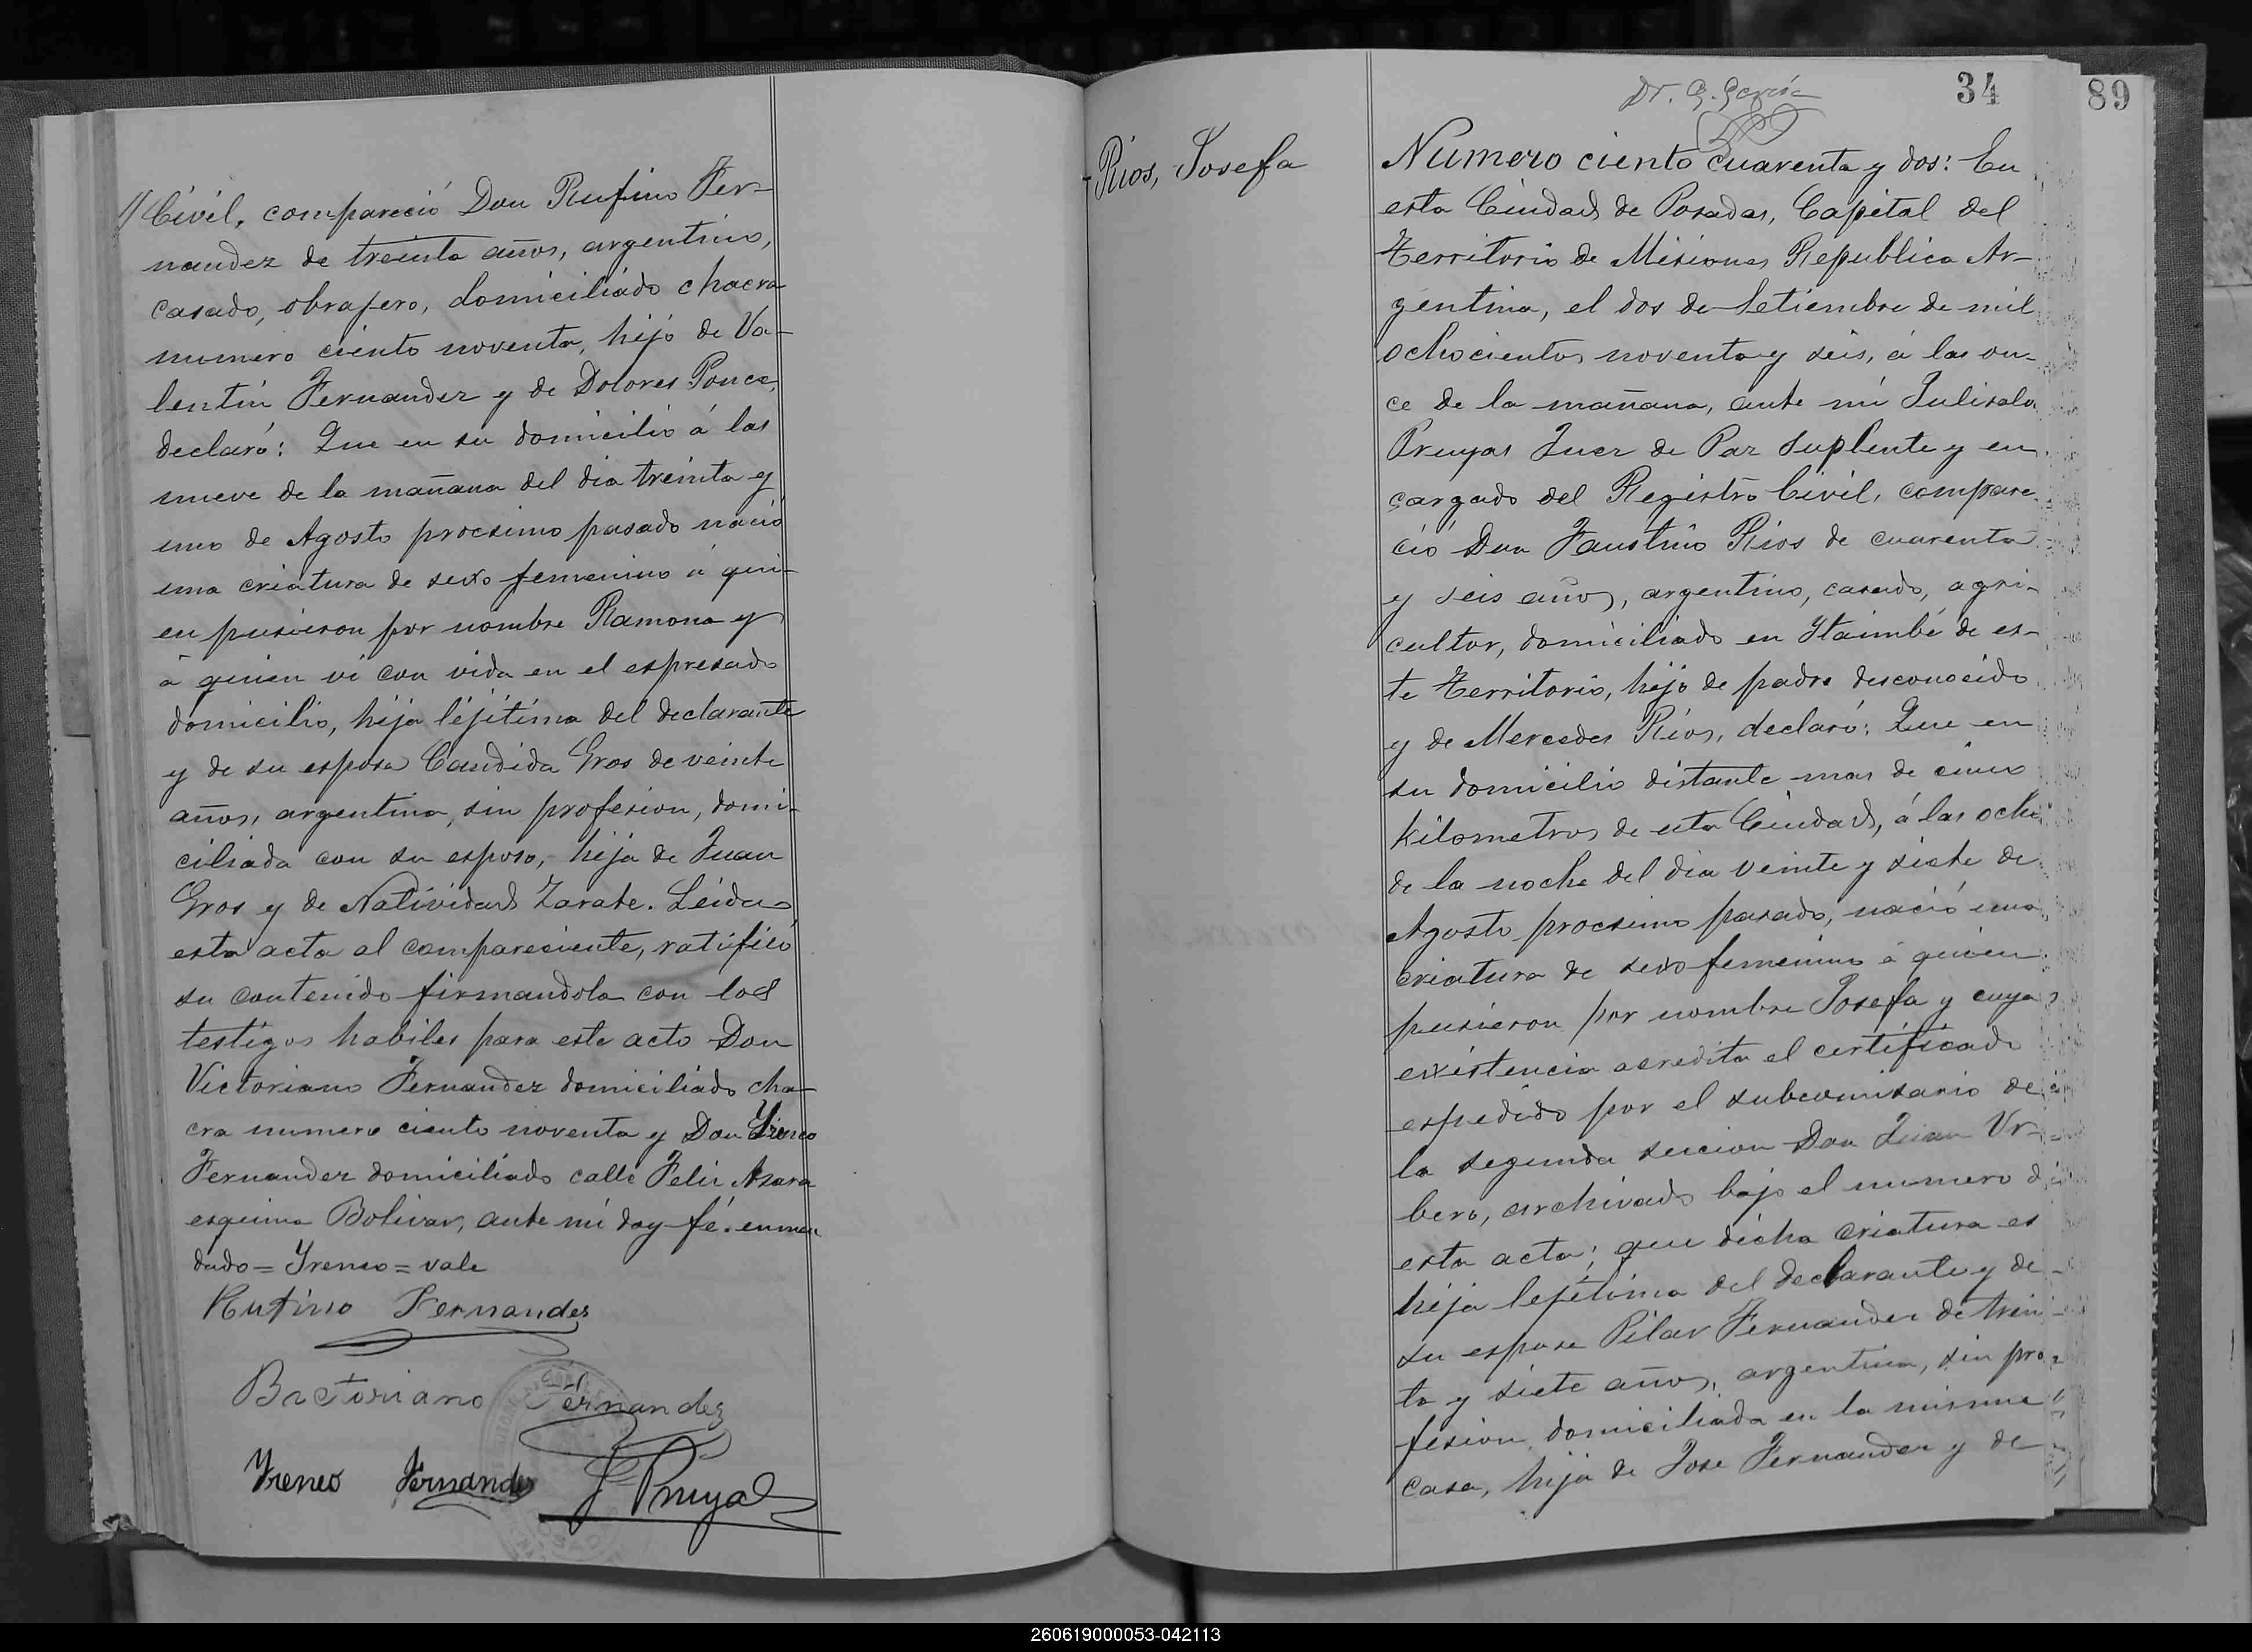 // Civil, compareció Don Rufino Fer-
nandez de treinta años, argentino,
casado, obrajero, domiciliado chacra
numero ciento noventa, hijo de Va-
lentin Fernandez y de Dolores Ponce,
declaró: Que en su domicilio á las
nueve de la mañana del dia treinta y
uno de Agosto procsimo pasado nació
una criatura de secso femenino á qui-
en pusieron por nombre Ramona y
á quien vi con vida en el espresado
domicilio, hija léjitima del declarante
y de su esposa Candida Gros de veinte
años, argentina, sin profesion, domi-
ciliada con su esposo, hija de Juan
Gros y de Natividad Zarate. Leida
esta acta al compareciente, ratificó
su contenido firmandola con los
testigos habiles para este acto Don
Victoriano Fernandez domiciliado cha-
cra numero ciento noventa y Don Yreneo
Fernandez domiciliado calle Felix Azara
esquina Bolivar, ante mi doy fé. enmen
dado = Yreneo = vale
Rufino Fernandes
Bictoriano Fernandez
Yreneo Fernandez
J Pruyas
Rios, Josefa
Dr. G. Garcia
34
89
Numero ciento cuarenta y dos: En
esta Ciudad de Posadas, Capital del
Territorio de Misiones Republica Ar-
gentina, el dos de Setiembre de mil
ochocientos noventa y seis, á las on-
ce de la mañana, ante mi Julisalo
Pruyas Juez de Paz Suplente y en
cargado del Registro Civil, compare
ció Don Faustino Rios de cuarenta
y seis años, argentino, casado, agri-
cultor, domiciliado en Ytaimbé de es-
te Territorio, hijo de padre desconocido
y de Mercedes Rios, declaró: Que en
su domicilio distante mas de cinco
kilometros de esta Ciudad, á las ocho
de la noche del dia veinte y siete de
Agosto procsimo pasado, nació una
criatura de secso femenino á quien
pusieron por nombre Josefa y cuya
existencia acredita el certificado
espedido por el subcomisario de
la segunda seccion Don Juan Ur-
bero, archivado bajo el numero d
esta acta; que dicha criatura es
hija lejitima del declarante y de
su esposa Pilar Fernandez de trein
ta y siete años, argentina, sin pro-
fesion, domiciliada en la misma
casa, hija de Jose Fernandez y de
260619000053-042113